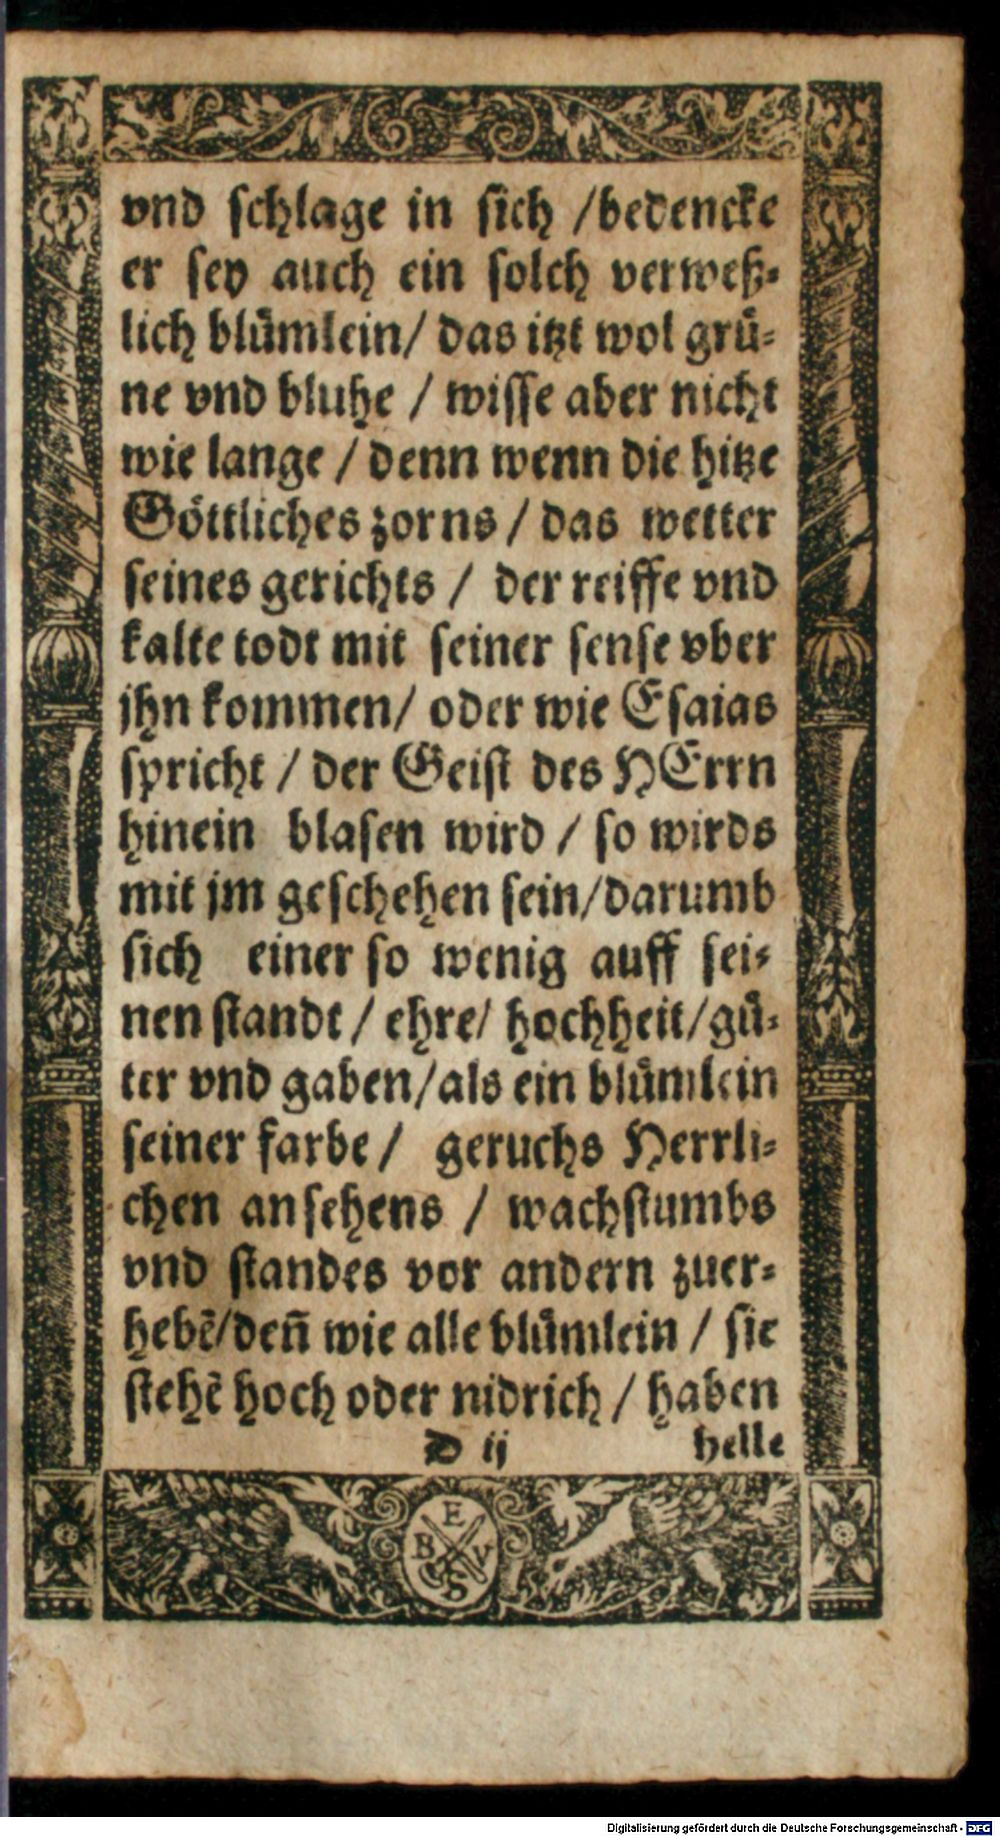 vnd schlage in sich /bedencke
er sey auch ein solch verweß⸗
lich blůmlein/ das itzt wol grů⸗
ne vnd bluhe / wisse aber nicht
wie lange / denn wenn die hitze
Göttliches zorns / das wetter
seines gerichts / der reiffe vnd
kalte todt mit seiner sense vber
jhn kommen/ oder wie Esaias
spricht / der Geist des HErrn
hinein blasen wird / so wirds
mit jm geschehen sein/darumb
sich einer so wenig auff sei⸗
nen standt / ehre/ hochheit/gů⸗
ter vnd gaben/als ein blůmlein
seiner farbe / geruchs Herrli⸗
chen ansehens / wachstumbs
vnd standes vor andern zuer⸗
hebē/deñ wie alle blůmlein / sie
stehē hoch oder nidrich / haben
D ij helle
E
B V
S
Digitalisierung gefördert durch die Deutsche Forschungsgemeinschaft - DFG